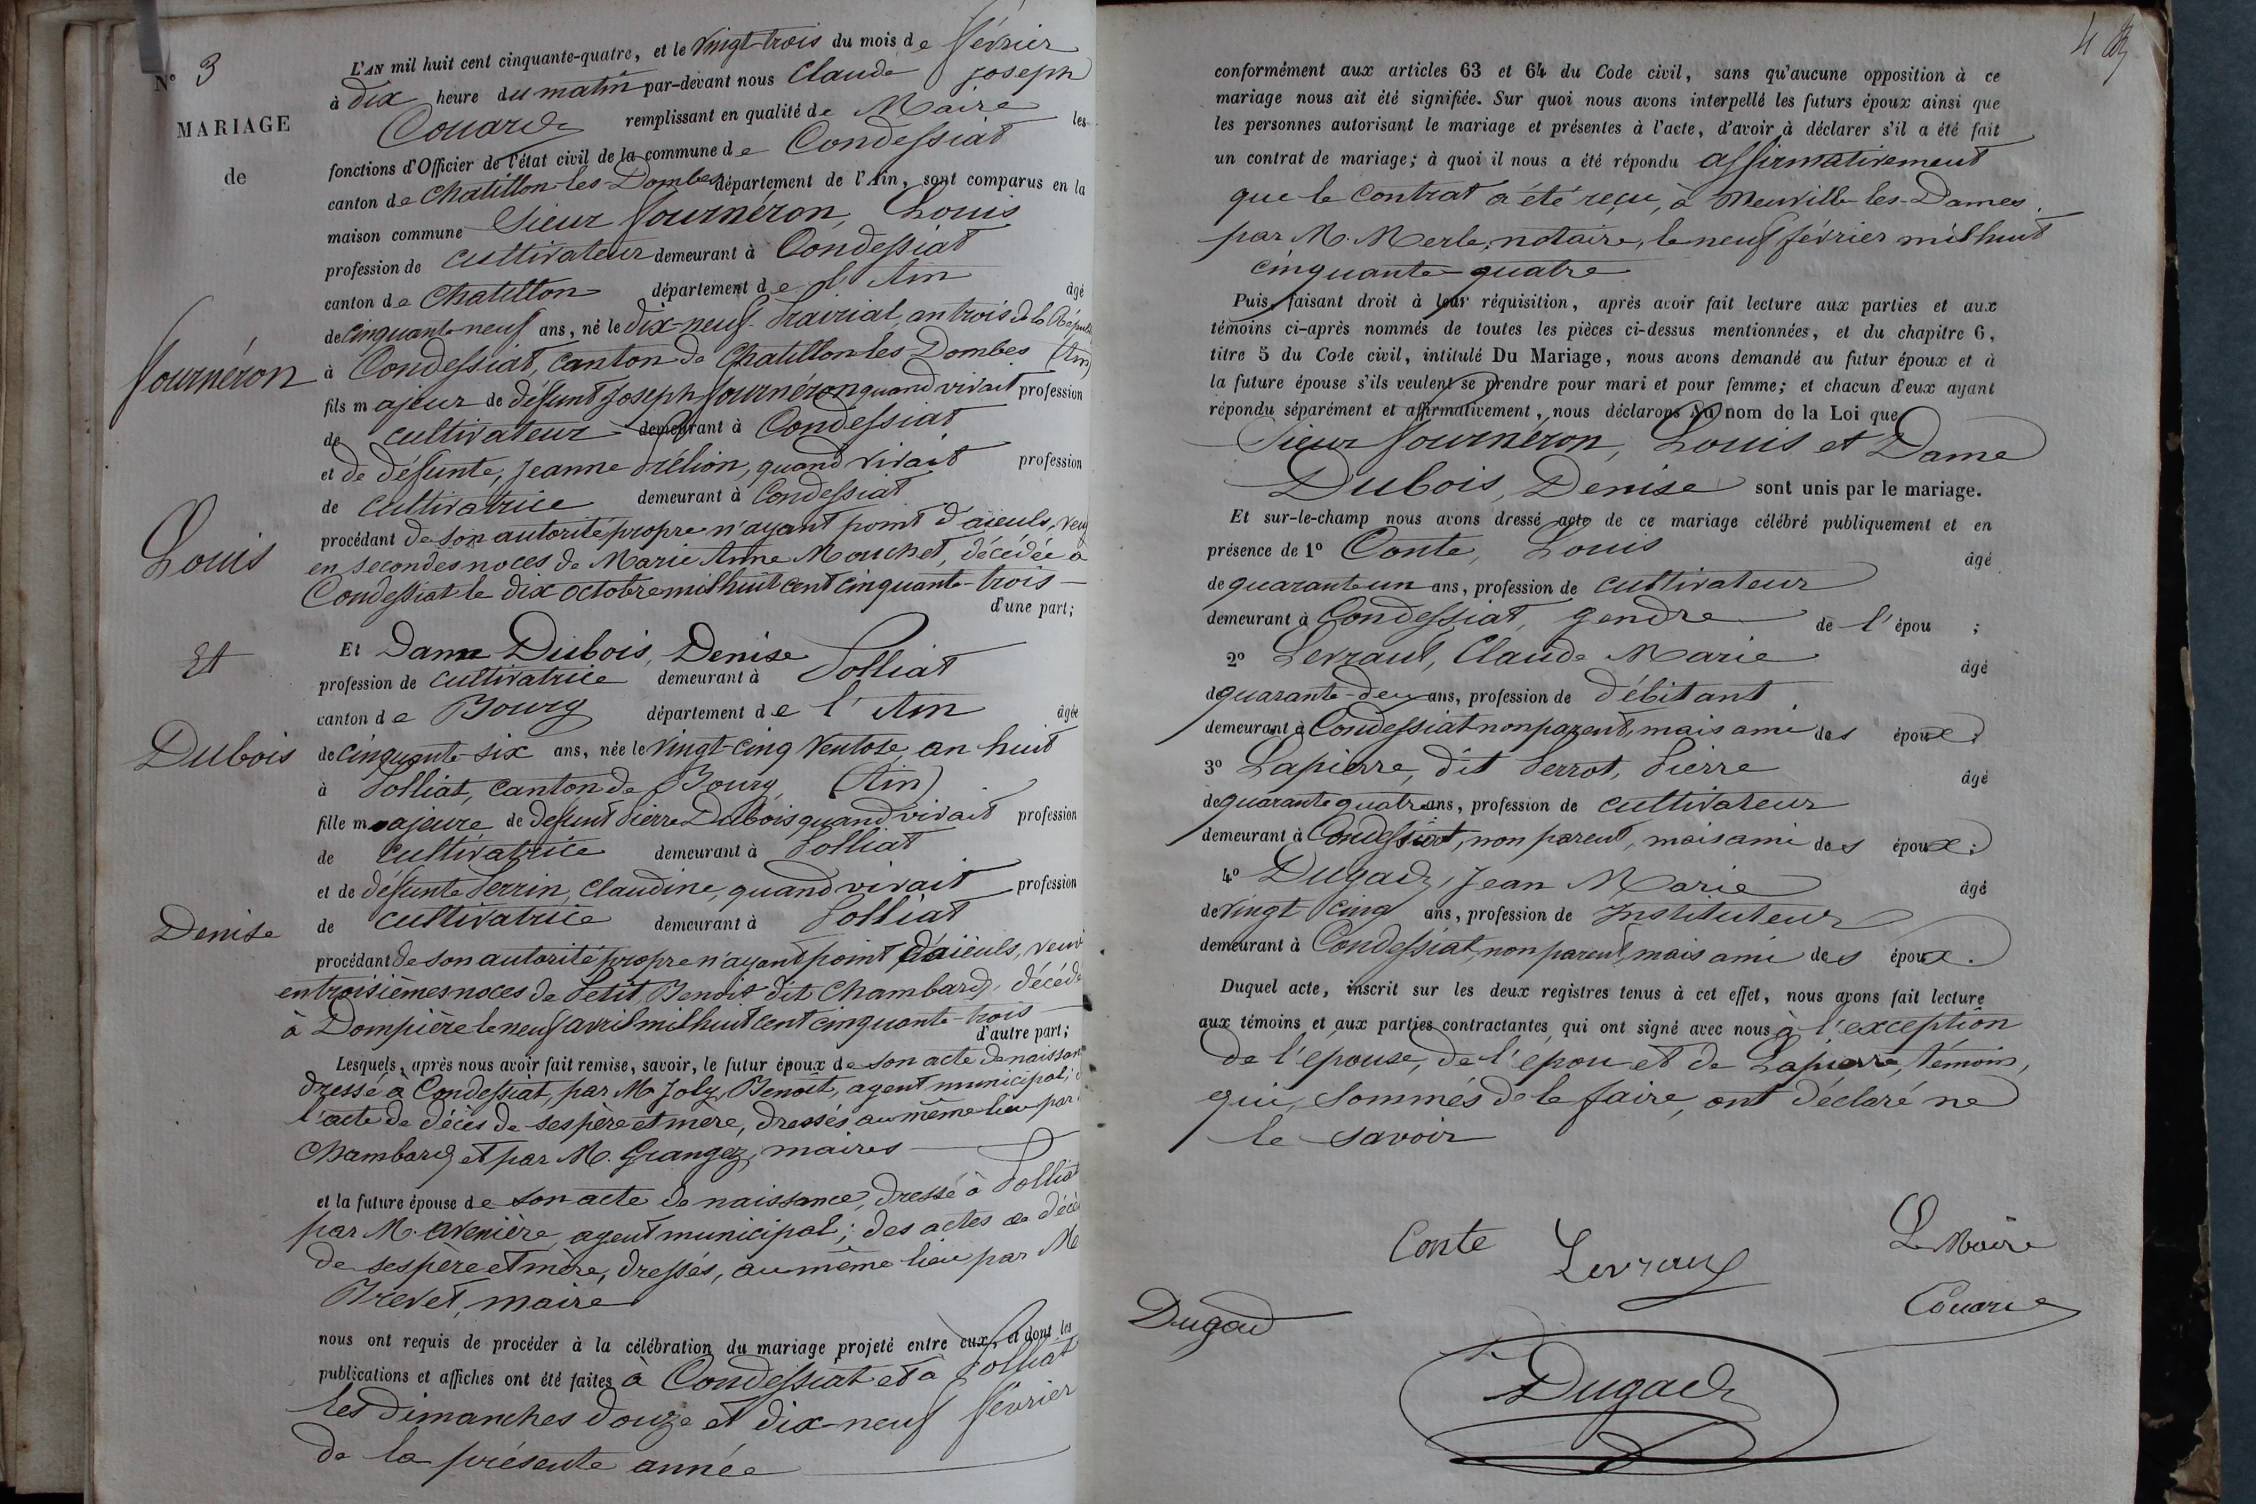 N° 3
MARIAGE
de
Fournéron
Louis
Et
Dubois
Denise
L'AN mil huit cent cinquante-quatre, et le vingt-trois du mois de février
à dix heure du matin par-devant nous Claude Joseph
Couard remplissant en qualité de Maire les
fonctions d'Officier de l'état civil de la commune de Condessiat
canton de Chatillon-les-Dombes département de l'Ain, sont comparus en la
maison commune Sieur Fournéron, Louis
profession de cultivateur demeurant à Condessiat
canton de Chatillon département de l'Ain âgé
de cinquante-neuf ans, né le dix-neuf Prairial, an trois de la Républ
à Condessiat, canton de Chatillon les Dombes (Ain)
fils majeur de défunt Joseph Fournéron quand vivait profession
de cultivateur demeurant à Condessiat
et de défunte, Jeanne Prélion, quand vivait profession
de cultivatrice demeurant à Condessiat
procédant de son autorité propre n'ayant point d'aïeuls, veuf
en secondes noces de Marie Anne Mouchet, décédée à
Condessiat le dix octobre mil huit cent cinquante-trois
d'une part;
Et Dame Dubois, Denise
profession de cultivatrice demeurant à Polliat
canton de Bourg département de l'Ain âgée
de cinquante-six ans, née le vingt-cinq Ventose an huit
à Polliat, canton de Bourg (Ain)
fille majeure de défunt Pierre Dubois quand vivait profession
de cultivatrice demeurant à Polliat
et de défunte Perrin, Claudine, quand vivait profession
de cultivatrice demeurant à Polliat
procédant de son autorité propre n'ayant point d'aïeuls, veuve
en troisièmes noces de Petit, Benoit dit Chambard, décédé
à Dompière le neuf avril mil huit cent cinquante-trois
d'autre part;
Lesquels, après nous avoir fait remise, savoir, le futur époux de son acte de naissance
dressé à Condessiat, par M. Joly, Benoît, agent municipal;
l'acte de décès de ses père et mère, dressés au même lieu par
Chambard et par M. Grangez, maires
et la future épouse de son acte de naissance, dressé à Polliat
par M. Avenière, agent municipal; des actes de décès
de ses père et mère, dressés, au même lieu par M.
Brevet, maire
nous ont requis de procéder à la célébration du mariage projeté entre eux, et dont les
publications et affiches ont été faites à Condessiat et à Polliat
les dimanches douze et dix-neuf février
de la présente année
4
conformément aux articles 63 et 64 du Code civil, sans qu'aucune opposition à ce
mariage nous ait été signifiée. Sur quoi nous avons interpellé les futurs époux ainsi que
les personnes autorisant le mariage et présentes à l'acte, d'avoir à déclarer s'il a été fait
un contrat de mariage; à quoi il nous a été répondu affirmativement
que le contrat a été reçu, à Neuville-les-Dames,
par M. Merle, notaire, le neuf février mil huit
cinquante-quatre
Puis, faisant droit à leur réquisition, après avoir fait lecture aux parties et aux
témoins ci-après nommés de toutes les pièces ci-dessus mentionnées, et du chapitre 6,
titre 5 du Code civil, intitulé Du Mariage, nous avons demandé au futur époux et à
la future épouse s'ils veulent se prendre pour mari et pour femme; et chacun d'eux ayant
répondu séparément et affirmativement, nous déclarons au nom de la Loi que
Sieur Fournéron, Louis et Dame
Dubois, Denise sont unis par le mariage.
Et sur-le-champ nous avons dressé acte de ce mariage célébré publiquement et en
présence de 1° Conte, Louis âgé
de quarante un ans, profession de cultivateur
demeurant à Condessiat, gendre de l'épou ;
2° Levraut, Claude Marie âgé
de quarante-deux ans, profession de débitant
demeurant à Condessiat non parent, mais ami des époux;
3° Lapierre, dit Perrot, Pierre âgé
de quarante quatre ans, profession de cultivateur
demeurant à Condessiat, non parent, mais ami des époux;
4° Dugad, Jean Marie âgé
de vingt-cinq ans, profession de Instituteur
demeurant à Condessiat, non parent, mais ami des époux.
Duquel acte, inscrit sur les deux registres tenus à cet effet, nous avons fait lecture
aux témoins et aux parties contractantes, qui ont signé avec nous à l'exception
de l'épouse, de l'épou et de Lapierre, témoin,
qui, sommés de le faire, ont déclaré ne
le savoir
Conte Levraut Le Maire
Couard
Dugad
Dugad